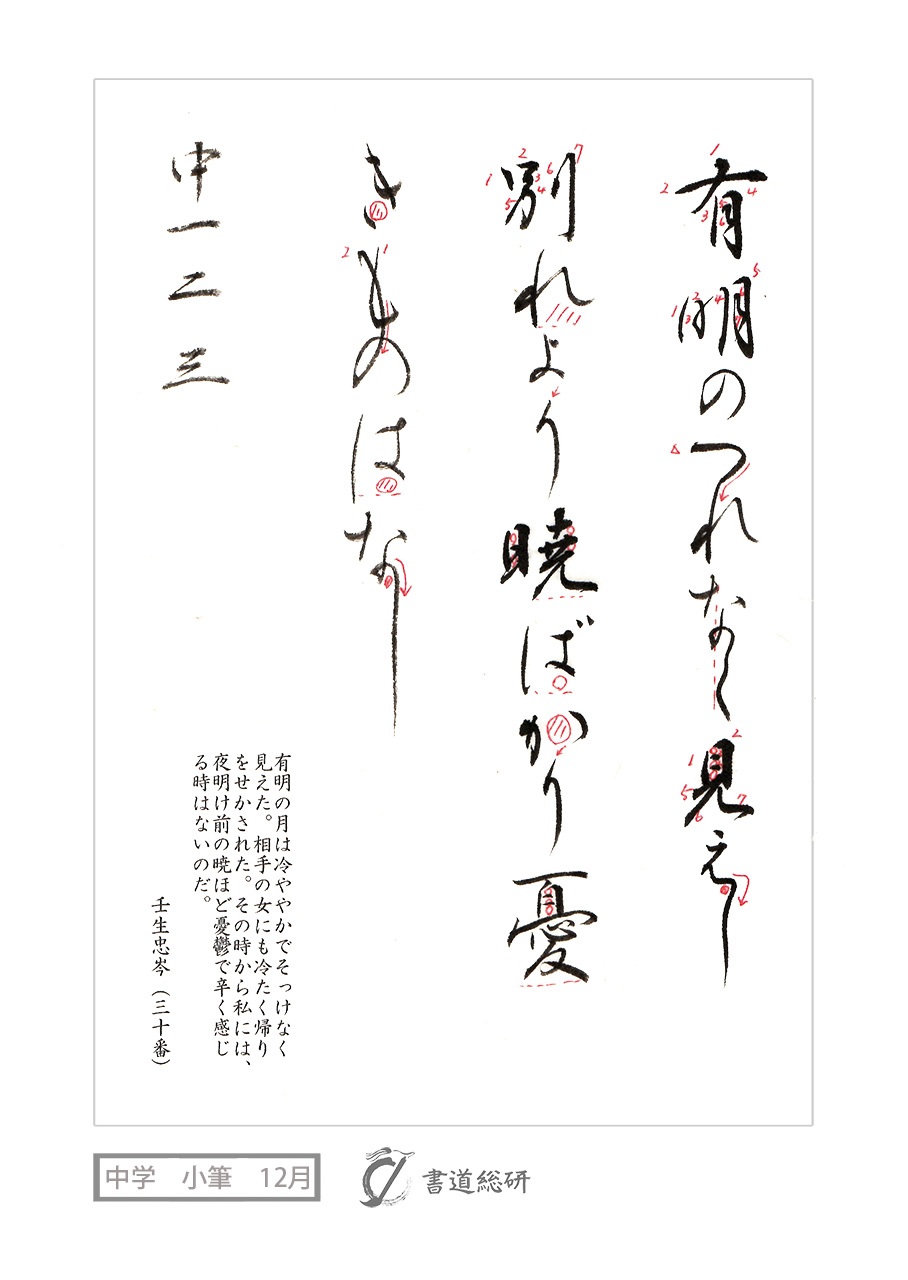 有明のつれなく見えし
別れより暁ばかり憂
きものはなし
中一二三
有明の月は冷ややかでそっけなく
見えた。相手の女にも冷たく帰り
をせかされた。その時から私には、
夜明け前の暁ほど憂鬱で辛く感じ
る時はないのだ。
壬生忠岑（三十番）
中学　小筆　12月
書道総研